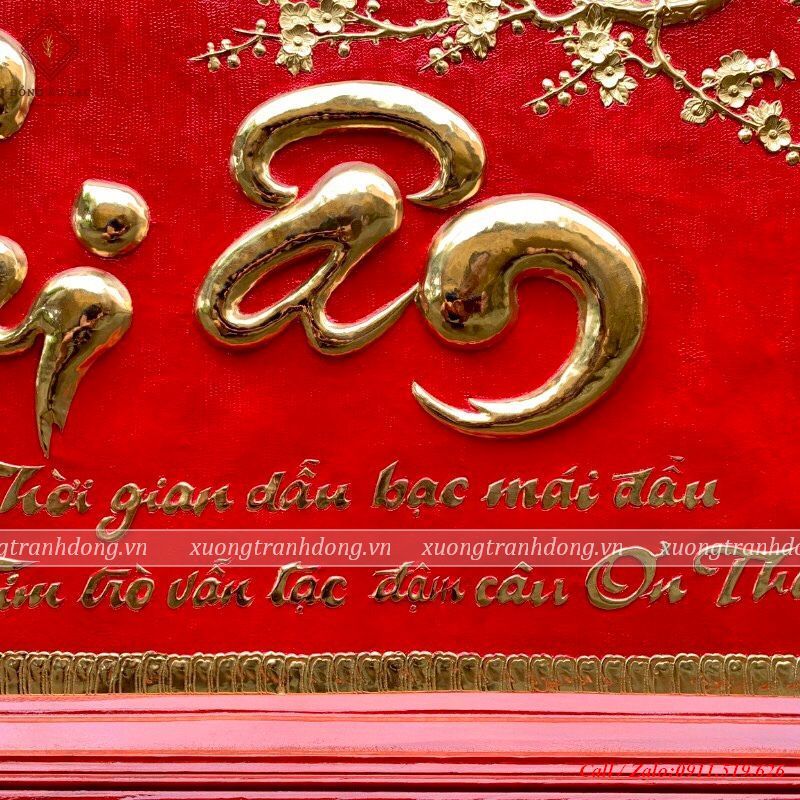 Thời gian dẫu bạc mái đầu
xuongtranhdong.vn xuongtranhdong.vn xuongtranhdong.vn
Tim trò vẫn tạc đậm câu Ơn
Call / Zalo:0911.519.626